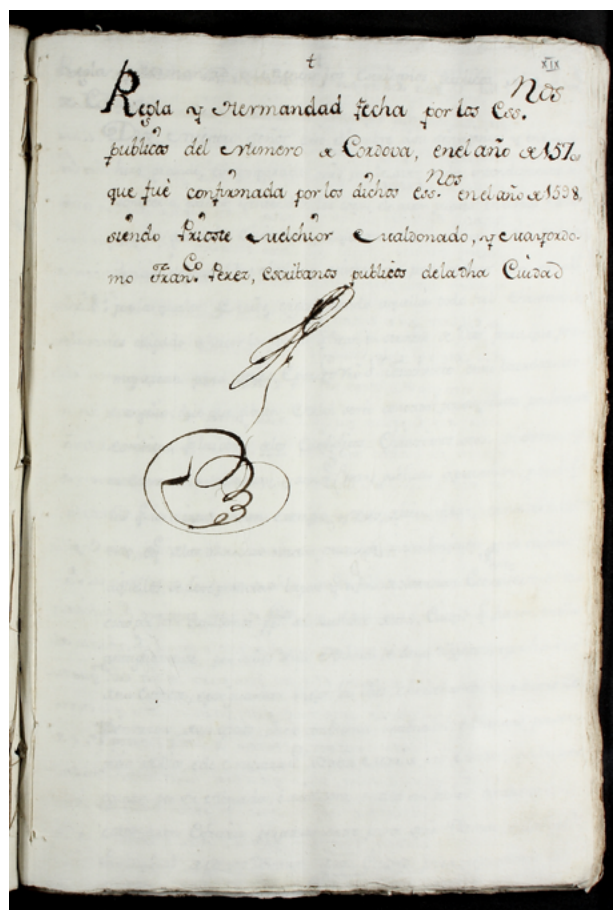 †
XIX
Regla y Hermandad fecha por los Ess.nos
publicos del Numero de Cordova, en el año de 157
que fue confirmada por los dichos Ess.nos en el año de 1598,
siendo Prioste Melchior Maldonado, y Mayordo-
mo Fran.co Perez, Escribanos publicos de la dha Ciudad